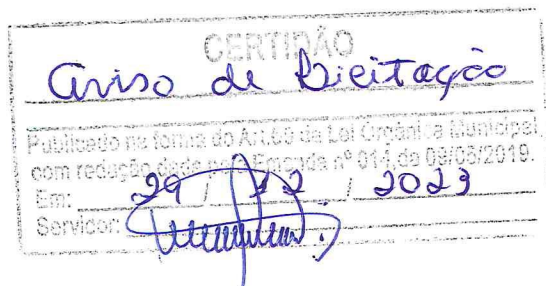 CERTIDÃO
Aviso de Licitação
Publicado na forma do Art.60 da Lei Orgânica Municipal,
com redação dada pela Emenda nº 014, de 09/08/2019.
Em: 29 / 12 / 2023
Servidor: